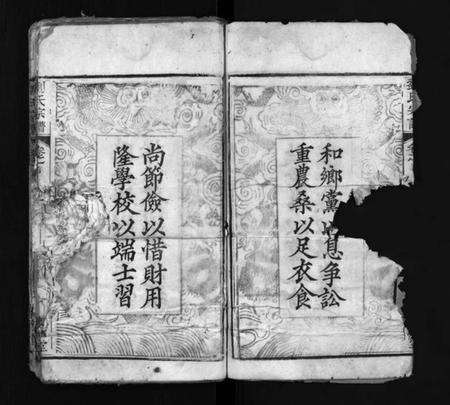 和鄉黨以息爭訟
重農桑以足衣食
尚節儉以惜財用
隆學校以端士習
氏宗譜